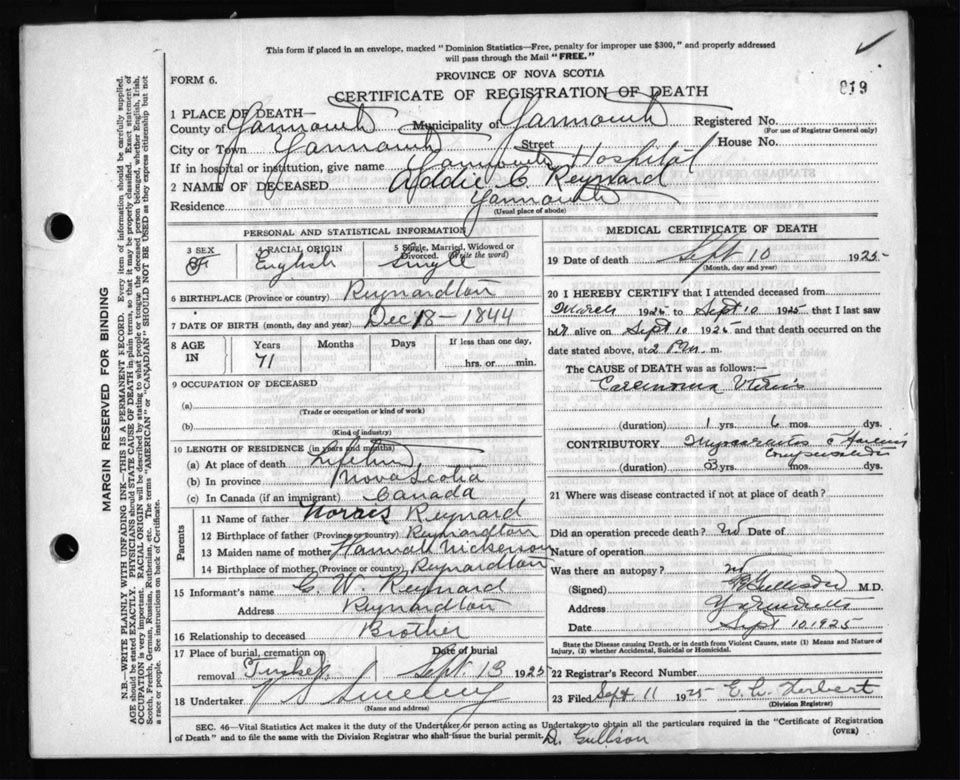 This form if placed in an envelope, marked "Dominion Statistics—Free, penalty for improper use $300," and properly addressed
will pass through the Mail "FREE."
FORM 6.
PROVINCE OF NOVA SCOTIA
819
CERTIFICATE OF REGISTRATION OF DEATH
1 PLACE OF DEATH—
County of Yarmouth Municipality of Yarmouth Registered No.
(For use of Registrar General only)
City or Town Yarmouth Street House No.
If in hospital or institution, give name Yarmouth Hospital
2 NAME OF DECEASED Addie C. Reynard
Residence Yarmouth
(Usual place of abode)
PERSONAL AND STATISTICAL INFORMATION
3 SEX F
4 RACIAL ORIGIN English
5 Single, Married, Widowed or Divorced. (Write the word) Single
6 BIRTHPLACE (Province or country) Reynardton
7 DATE OF BIRTH (month, day and year) Dec 18 – 1844
8 AGE IN Years 71 Months Days If less than one day, hrs. or min.
9 OCCUPATION OF DECEASED
(a)
(Trade or occupation or kind of work)
(b)
(Kind of industry)
10 LENGTH OF RESIDENCE (in years and months)
(a) At place of death Lifetime
(b) In province Nova Scotia
(c) In Canada (if an immigrant) Canada
Parents
11 Name of father Reynard
12 Birthplace of father (Province or country) Reynardton
13 Maiden name of mother Hannah Nickerson
14 Birthplace of mother (Province or country) Reynardton
15 Informant's name C. W. Reynard
Address Reynardton
16 Relationship to deceased Brother
17 Place of burial, cremation or removal Tusket Date of burial Sept. 13 1925
18 Undertaker V S Sweeny
(Name and address)
MEDICAL CERTIFICATE OF DEATH
19 Date of death Sept 10 1925
(Month, day and year)
20 I HEREBY CERTIFY that I attended deceased from
March 192 to Sept 10 1925 that I last saw
her alive on Sept 10 1925 and that death occurred on the
date stated above, at 2 P.m. m.
The CAUSE OF DEATH was as follows:—
Carcinoma Uterus
(duration) 1 yrs. 6 mos.
CONTRIBUTORY Myocarditis
(duration) yrs. mos.
21 Where was disease contracted if not at place of death?
Did an operation precede death? no Date of
Nature of operation
Was there an autopsy? no
(Signed) Gullison M.D.
Address Yarmouth
Date Sept 10 1925
State the Disease causing Death, or in death from Violent Causes, state (1) Means and Nature of
Injury, (2) whether Accidental, Suicidal or Homicidal.
22 Registrar's Record Number
23 Filed Sept. 11 1925 Herbert
(Division Registrar)
SEC. 46—Vital Statistics Act makes it the duty of the Undertaker or person acting as Undertaker to obtain all the particulars required in the "Certificate of Registration
of Death" and to file the same with the Division Registrar who shall issue the burial permit. (OVER)
D. Gullison
MARGIN RESERVED FOR BINDING
N.B.—WRITE PLAINLY WITH UNFADING INK—THIS IS A PERMANENT RECORD. Every item of information should be carefully supplied.
AGE should be stated EXACTLY. PHYSICIANS should STATE CAUSE OF DEATH in plain terms, so that it may be properly classified. Exact statement of
OCCUPATION is very important. RACIAL ORIGIN will be described by stating to what people or tongue the deceased person belonged, whether English, Irish,
Scotch, French, German, Russian, Ruthenian, etc. The terms "AMERICAN" or "CANADIAN" SHOULD NOT BE USED as they express citizenship but not
a race or people. See instructions on back of Certificate.